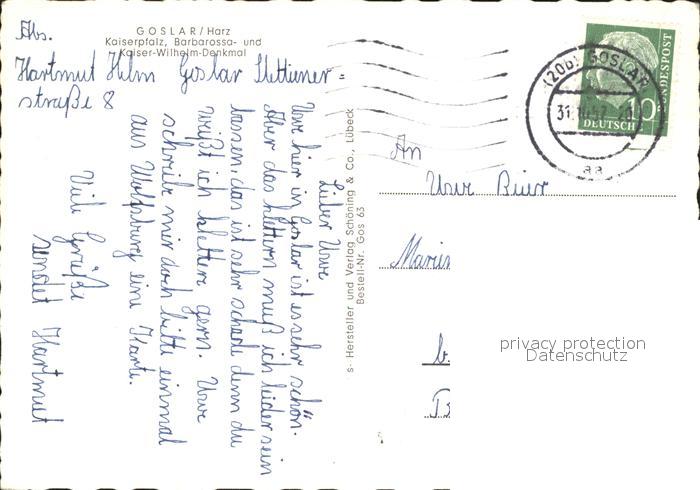 Abs.
GOSLAR/Harz
Kaiserpfalz, Barbarossa- und
Kaiser-Wilhelm-Denkmal
Hartmut Helm Goslar Stettiner=
straße 8
Lieber Uwe
Uwe hier in Goslar ist es sehr schön.
Aber das klettern muß ich leider sein
lassen, das ist sehr schade denn du
weißt ich klettere gern. Uwe
schreib mir doch bitte einmal
aus Wolfsburg eine Karte.
Viele Grüße
sendet Hartmut
s- Hersteller und Verlag Schöning & Co., Lübeck
Bestell-Nr. Gos 63
(20b) GOSLAR
aa
10
DEUTSCHE
BUNDESPOST
An
Uwe Beier
b.
privacy protection
Datenschutz